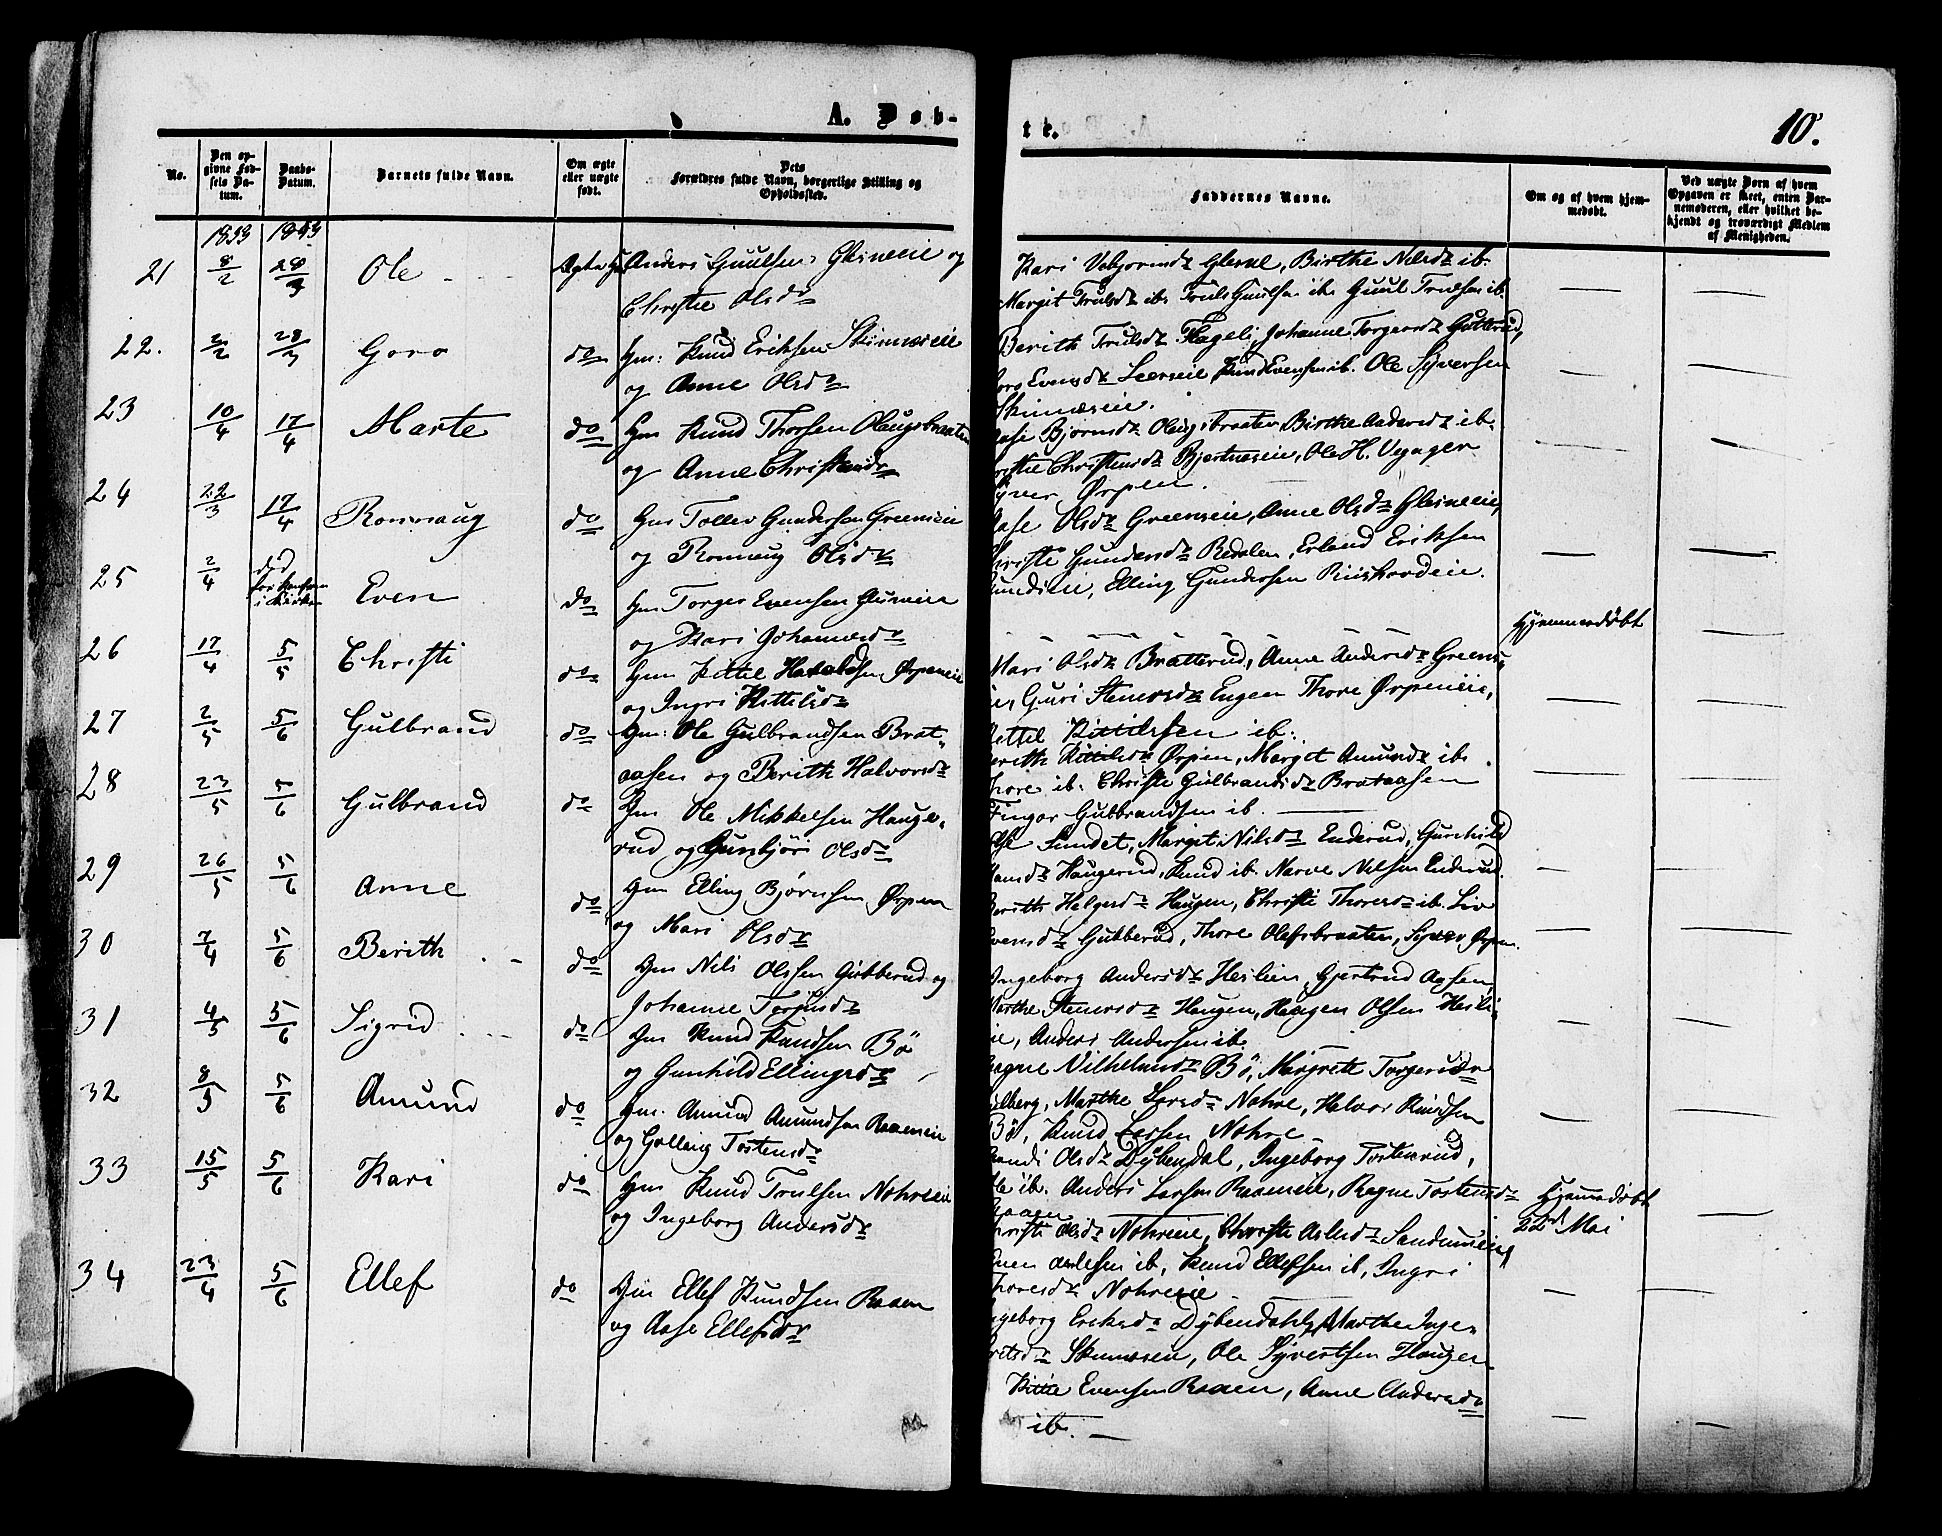 A. Døb-
te.
10.
No.
Den op-
givne Fød-
sels Da-
tum.
Daabs-
Datum.
Barnets fulde Navn.
Om ægte
eller uægte
født.
Dets
Forældres fulde Navn, borgerlige Stilling og
Opholdssted.
Faddernes Navne.
Om og af hvem hjem-
medøbt.
Ved uægte Børn af hvem
Opgaven er skeet, enten Bar-
nemoderen, eller hvilket be-
kjendt og troværdigt Medlem
af Menigheden.
1853 1853
21 8/2 28/3 Ole Ægte Gm Anders Guulsen Glesneeie og
Christie Olsdr
Kari Vebjørnsdr Glesne, Birthe Nilsdr ib.
Margit Trulsdr ib. Truls Guulsen ib. Guul Trulsen ib.
22. 2/2 28/3 Goro do Gm: Knud Eriksen Skinnæseie
og Anne Olsdr
Berith Trulsdr Flageli, Johanne Torgersdr Gulterud,
Evensdr Leerseie Knud Evensen ib. Ole Syversen
Skinnæseie.
23 10/4 17/4 Marte do Gm Knud Thorsen Olaugsbraaten
og Anne Christensdr
Aase Bjørnsdr Olaugsbraaten Birthe Andersdr ib.
Christensdr Bjertnæseie, Ole H. Veggger
Syver Ørpen.
24 22/3 17/4 Ronnaug do Gm Tollev Gundersen Greenseie
og Ronnaug Olsdr
Aase Olsdr Greenseie, Anne Olsdr Glesneeie,
Christi Gundersdr Redalen, Erland Eriksen
Elling Gundersen
25 2/4 død
i Kirken Even do Gm Torger Evensen
og Kari Johannesdr
Hjemmedøbt
26 17/4 5/5 Christi do Gm Kittel Haraldsen Ørpeneie
og Ingri Kittilsdr
Mari Olsdr Bratterud, Anne Andersdr Greens-
eie, Guri Steenersdr Engen Thore Ørpeneie,
Kettel Kittelsen ib.
27 2/5 5/6 Gulbrand do Gm: Ole Gulbrandsen Brat-
aasen og Berith Halvorsdr
Berith Kittelsdr Ørpen, Margit Amundsdr ib.
Thore ib. Christi Gulbrandsdr Brataasen
Fingar Gulbrandsen ib.
28 23/5 5/6 Gulbrand do Gm Ole Mikkelsen Hauge-
rud og Gunbjør Olsdr
Sundet, Margit Nilsdr Enderud, Gunhild
Hansdr Haugerud, Knud ib. Narve Nilsen Enderud.
29 26/5 5/6 Anne do Gm Elling Bjørnsen Ørpen
og Mari Olsdr
Berith Helgesdr Haugen, Christi Thoresdr ib. Liv
Evensdr Gubberud, Thore Olafsbraaten, Syver Ørpen.
30 7/4 5/6 Berith do Gm Nils Olssen Gubberud og
Johanne Torjusdr
Ingeborg Andersdr Heslien, Gjertrud Aasen,
Marthe Steenersdr Haugen, Haagen Olsen Hesli-
eie, Anders Andersen ib.
31 4/5 5/6 Sigrid do Gm Knud Knudsen Bö
og Gunhild Ellingsdr
Ragne Vilhelmsdr Bö, Margrete Torgersdr
Marthe Larsdr Nohre, Halvor Knudsen
Bö, Knud Larsen Nohre
32 8/5 5/6 Amund do Gm. Amund Amundsen Raaeneie
og Golleug Tostensdr
Randi Olsdr Dybendal, Ingeborg Tostensrud,
Ole ib. Anders Larsen Raaeneie, Ragne Tostensdr
Raaen
33 15/5 5/6 Kari do Gm Knud Trulsen Nohreeie
og Ingeborg Andersdr
Christi Olsdr Nohreeie, Christi Aslesdr Sandumseie,
Even Aslesen ib, Knud Ellefsen ib, Ingri
Thoresdr Nohreeie
Hjemmedøbt
22d Mai
34 23/4 5/6 Ellef do Gm Ellef Knudsen Raaen
og Aase Ellefsdr
Ingeborg Eriksdr Dybendahl, Marthe Inge-
britsdr Skinnæseie, Ole Syvertsen Haugen
Kittil Evensen Raaen, Anne Andersdr
ib.